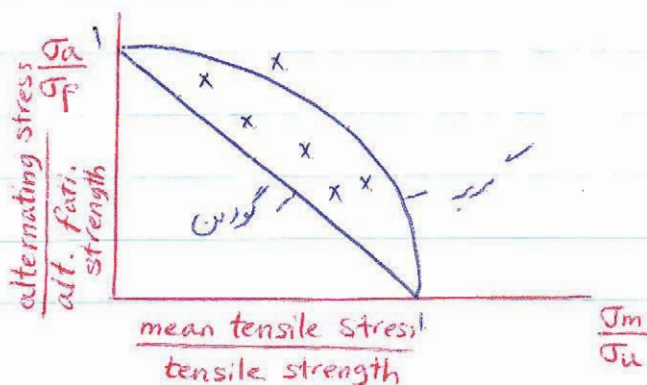 1
σa
σf
alternating stress
alt. fati. strength
x
x
x
x
x
x
گودمن
mean tensile stress
tensile strength
1
σm
σu